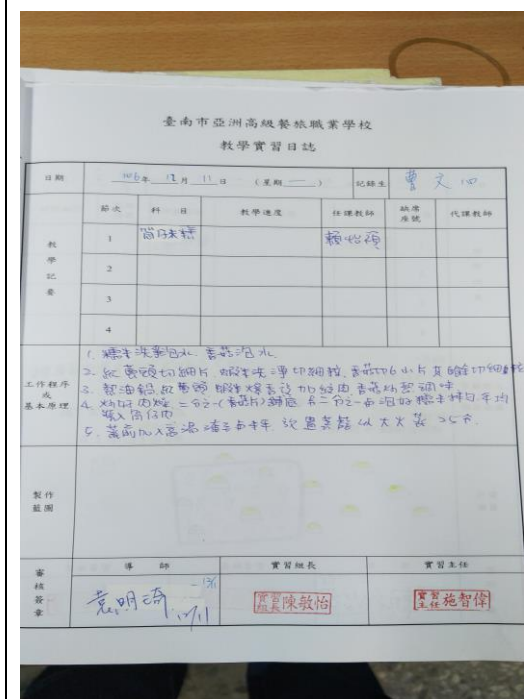 臺南市亞洲高級餐旅職業學校
教學實習日誌
日期 106年 12月 11日 (星期一) 記錄生 曹文
教學記要 節次 科目 教學進度 任課教師 缺席座號 代課教師
1 筒仔米糕 賴怡
2
3
4
工作程序或基本原理
1. 糯米洗淨泡水, 香菇泡水
2. 紅蔥頭切細片, 蝦米洗淨切細粒, 香菇切6小片 其餘切細粒
3. 熱油鍋, 紅蔥頭 蝦米爆香後加絞肉 香菇炒熟調味
4. 炒好肉燥 二分之一(香菇片)鋪底 另二分之一與泡好糯米拌勻, 平均
填入筒仔內
5. 蒸前加入高湯 以大火蒸 25分.
製作藍圖
審核簽章 導師 實習組長 實習主任
袁明琦 12/11
實習組長陳敏怡
實習主任施智偉